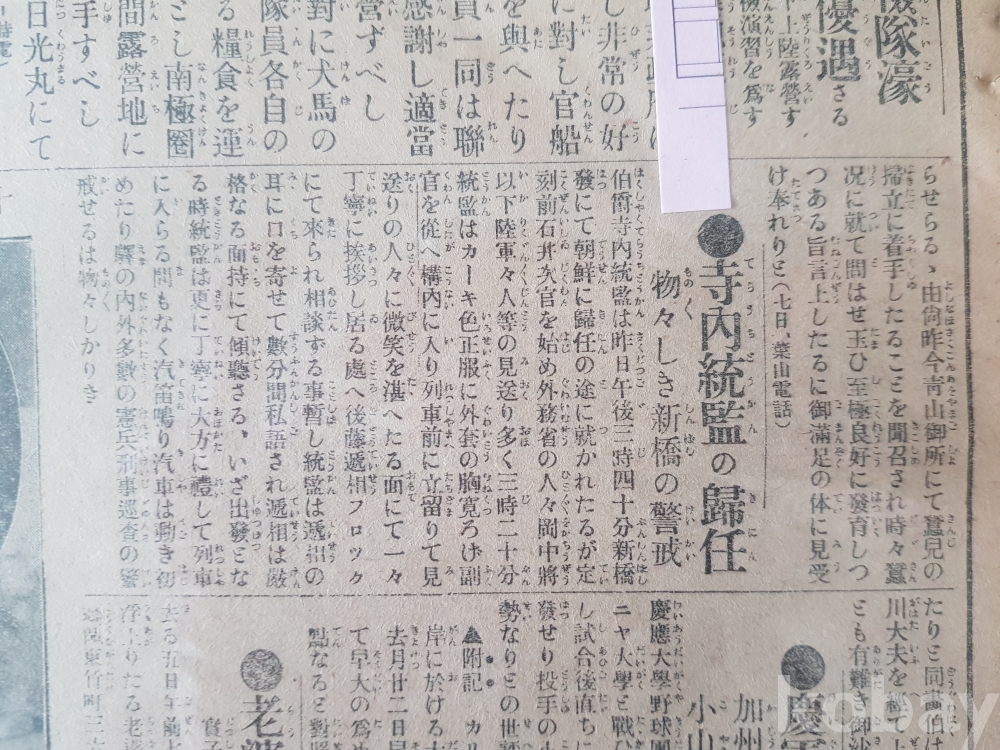 優遇さる
上陸露營す
演習を爲す
し非常の好
に對し官船
を與へたり
員一同は聯
感謝し適當
營ずべし
對に犬馬の
隊員各自の
る糧食を運
ミし南極圈
間露營地に
手すべし
日光丸にて
らせらる、由尙昨今靑山御所にて蠶兒の
掃立に着手したることを聞召され時々蠶
况に就て問はせ玉ひ至極良好に發育しつ
つある旨言上したるに御滿足の体に見受
け奉れりと(七日、葉山電話)
●寺內統監の歸任
物々しき新橋の警戒
伯爵寺內統監は昨日午後三時四十分新橋
發にて朝鮮に歸任の途に就かれたるが定
刻前石井次官を始め外務省の人々岡中將
以下陸軍々人等の見送り多く三時二十分
統監はカーキ色正服に外套の胸寬ろげ副
官を從へ構內に入り列車前に立留りて見
送りの人々に微笑を湛へたる面にて一々
丁寧に挨拶し居る處へ後藤遞相フロック
にて來られ相談する事暫し統監は遞相の
耳に口を寄せて數分間私語され遞相は嚴
格なる面持にて傾聽さる、いざ出發とな
る時統監は更に丁寧に大方に禮して列車
に入らる間もなく汽笛鳴り汽車は動き初
めたり驛の內外多數の憲兵刑事巡査の警
戒せるは物々しかりき
たりと同
川大夫を經て
とも有難き御沙
●慶
加州
小山
慶應大學野球團
ニヤ大學と戰ひ
し試合後直ちに
發せり投手の
勢なりとの世評
▲附記 カリ
岸に於ける大
去月廿二日早
て早大の爲め
點なると對照
●老
去る五日午前
浮上りたる老